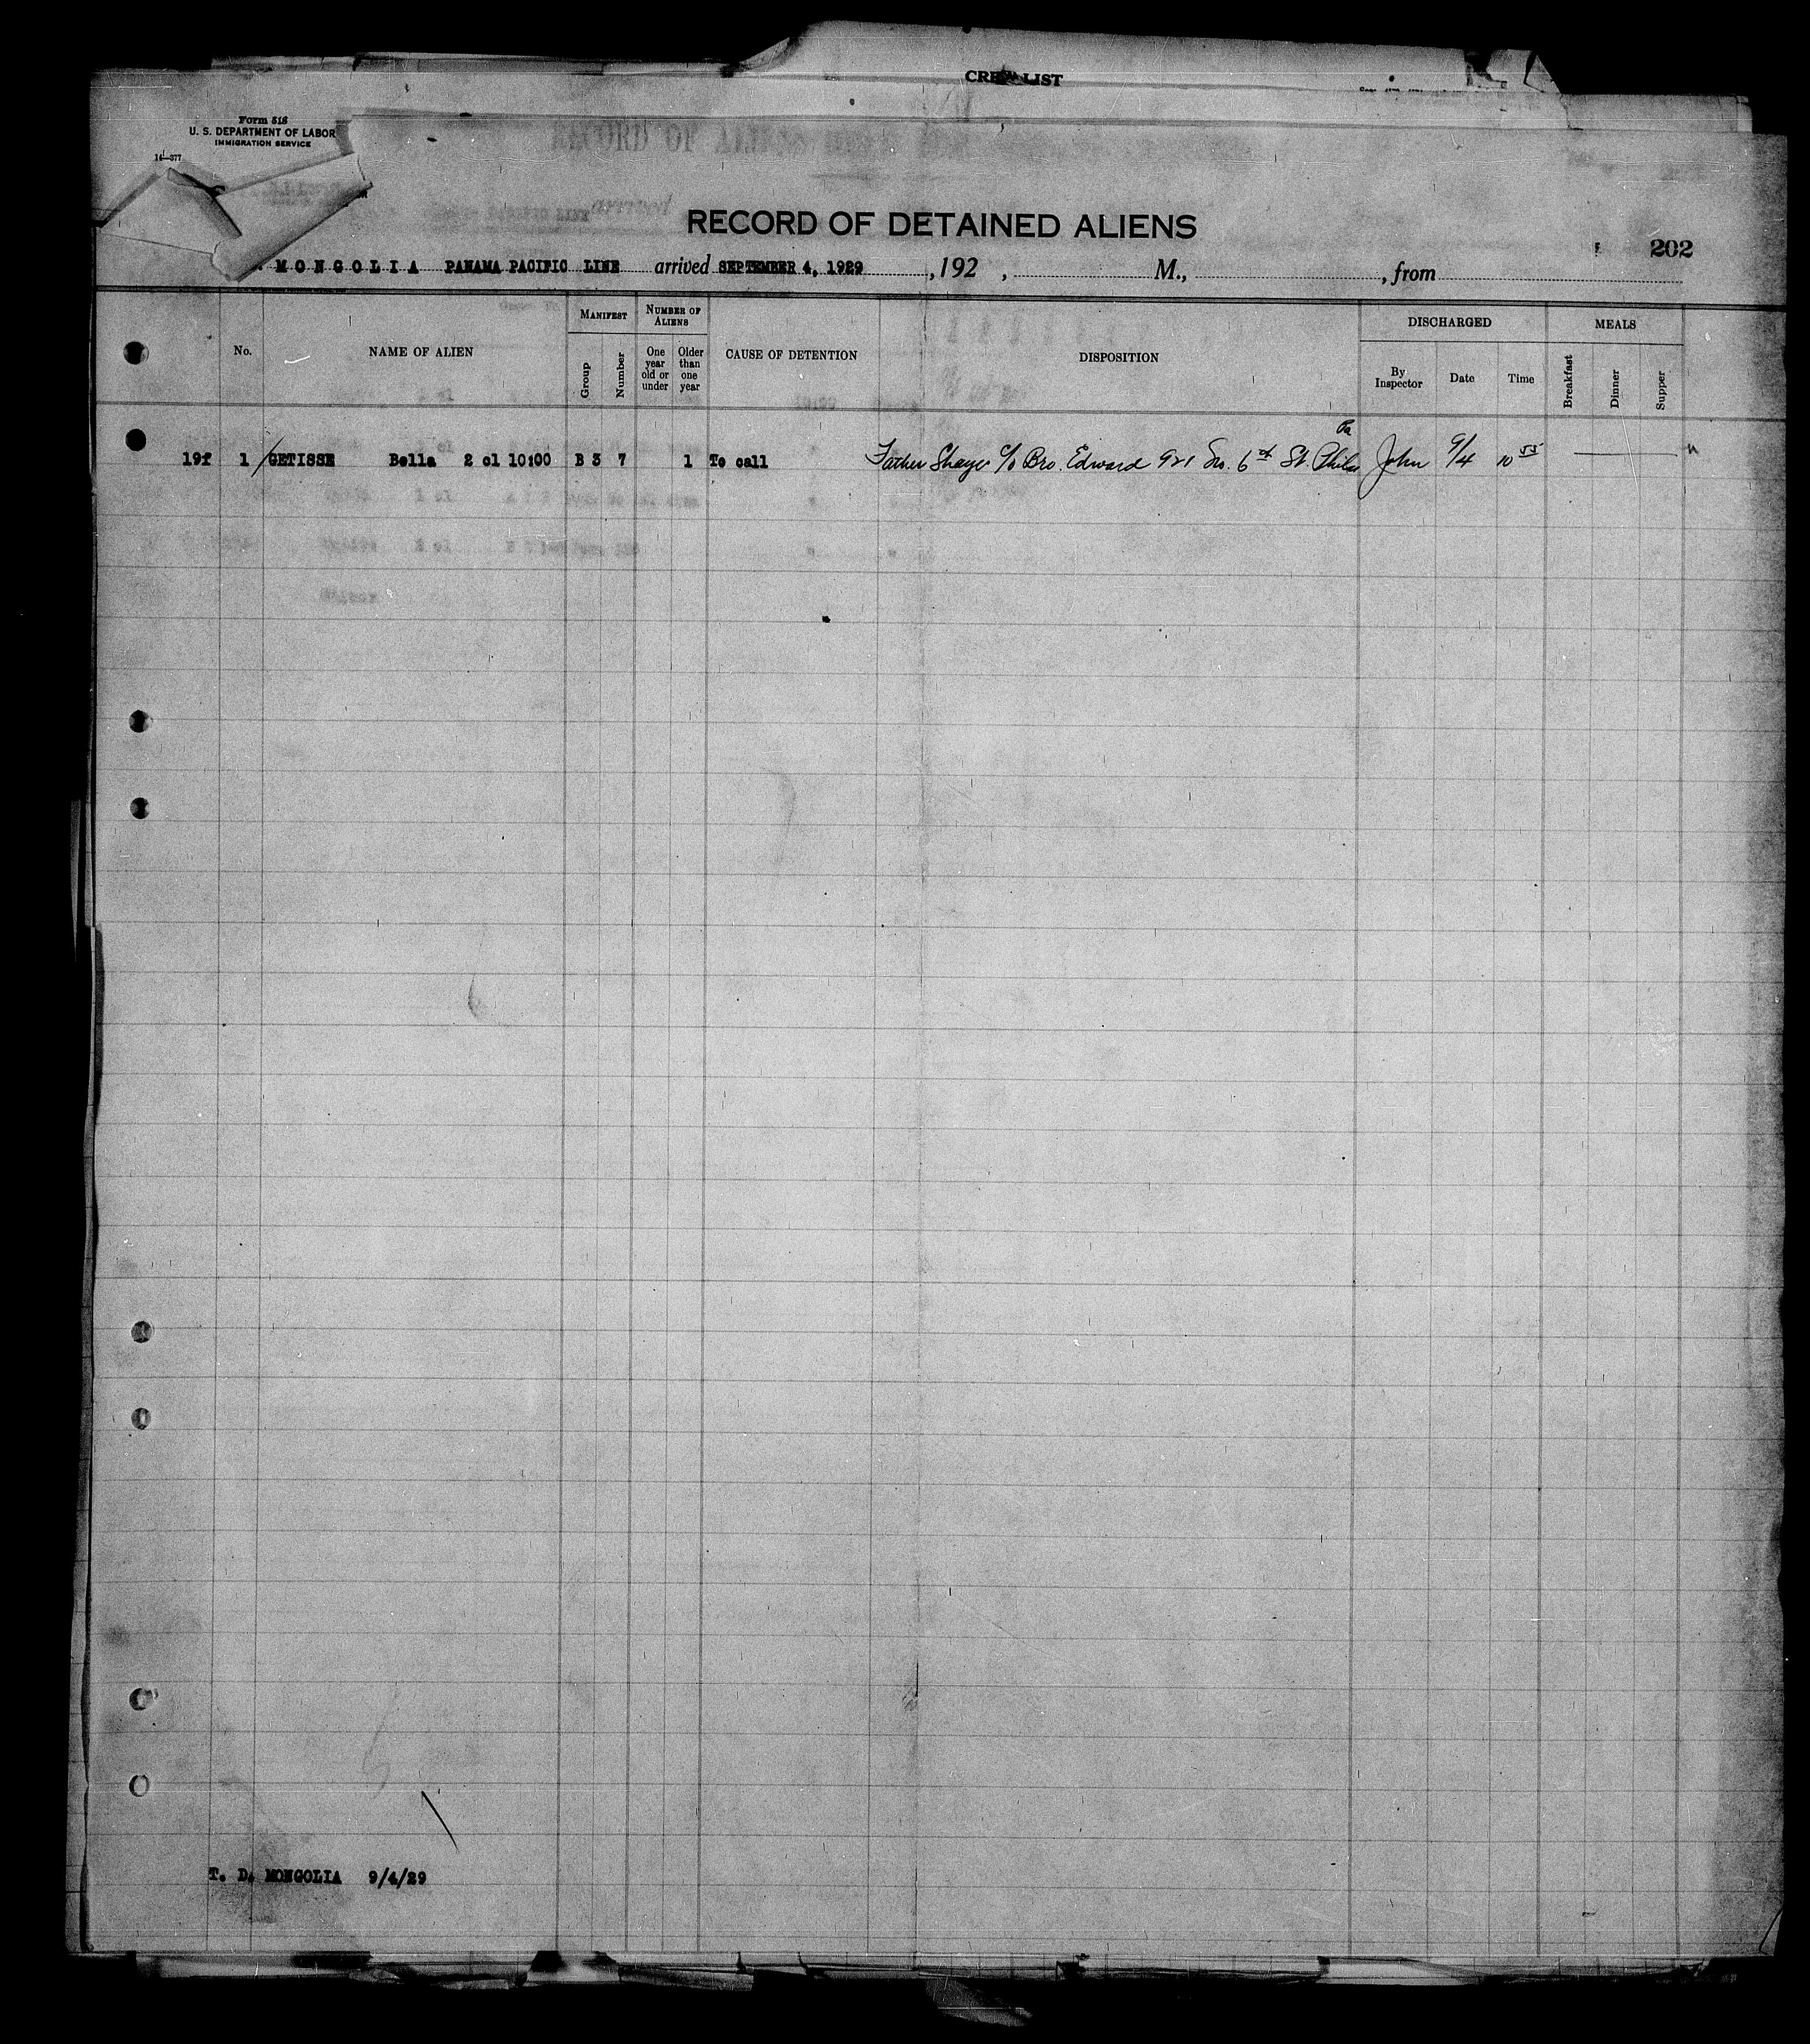 CREW LIST
Form 518
U. S. DEPARTMENT OF LABOR
IMMIGRATION SERVICE
14—377
RECORD OF DETAINED ALIENS
202
MONGOLIA PANAMA PACIFIC LINE arrived SEPTEMBER 4, 1929, 192 , M., , from
No. NAME OF ALIEN MANIFEST Group Number NUMBER OF ALIENS One year old or under Older than one year CAUSE OF DETENTION DISPOSITION DISCHARGED By Inspector Date Time MEALS Breakfast Dinner Supper
19f 1 GETISSE Bella 2 cl 10:00 B 3 7 1 To call Father Shaye c/o Bro. Edward 921 So. 6th St. Phila Pa John 9/4 10 55
T. D. MONGOLIA 9/4/29